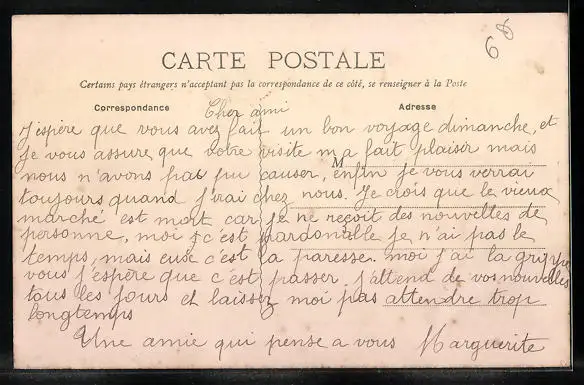 6
CARTE POSTALE
Certains pays étrangers n'acceptant pas la correspondance de ce côté, se renseigner à la Poste
Correspondance
Adresse
Cher ami
J'espère que vous avez fait un bon voyage dimanche, et
je vous assure que votre visite m'a fait plaisir mais
nous n'avons pas pu causer, enfin je vous verrai
toujours quand j'irai chez nous. Je crois que le vieux
marché est mort car je ne reçoit des nouvelles de
personne, moi c'est pardonable je n'ai pas le
temps, mais eux c'est la paresse. moi j'ai la grippe
vous j'espère que c'est passer. j'attend de vos nouvelles
tous les jours et laissez moi pas attendre trop
longtemps
Une amie qui pense a vous Marguerite